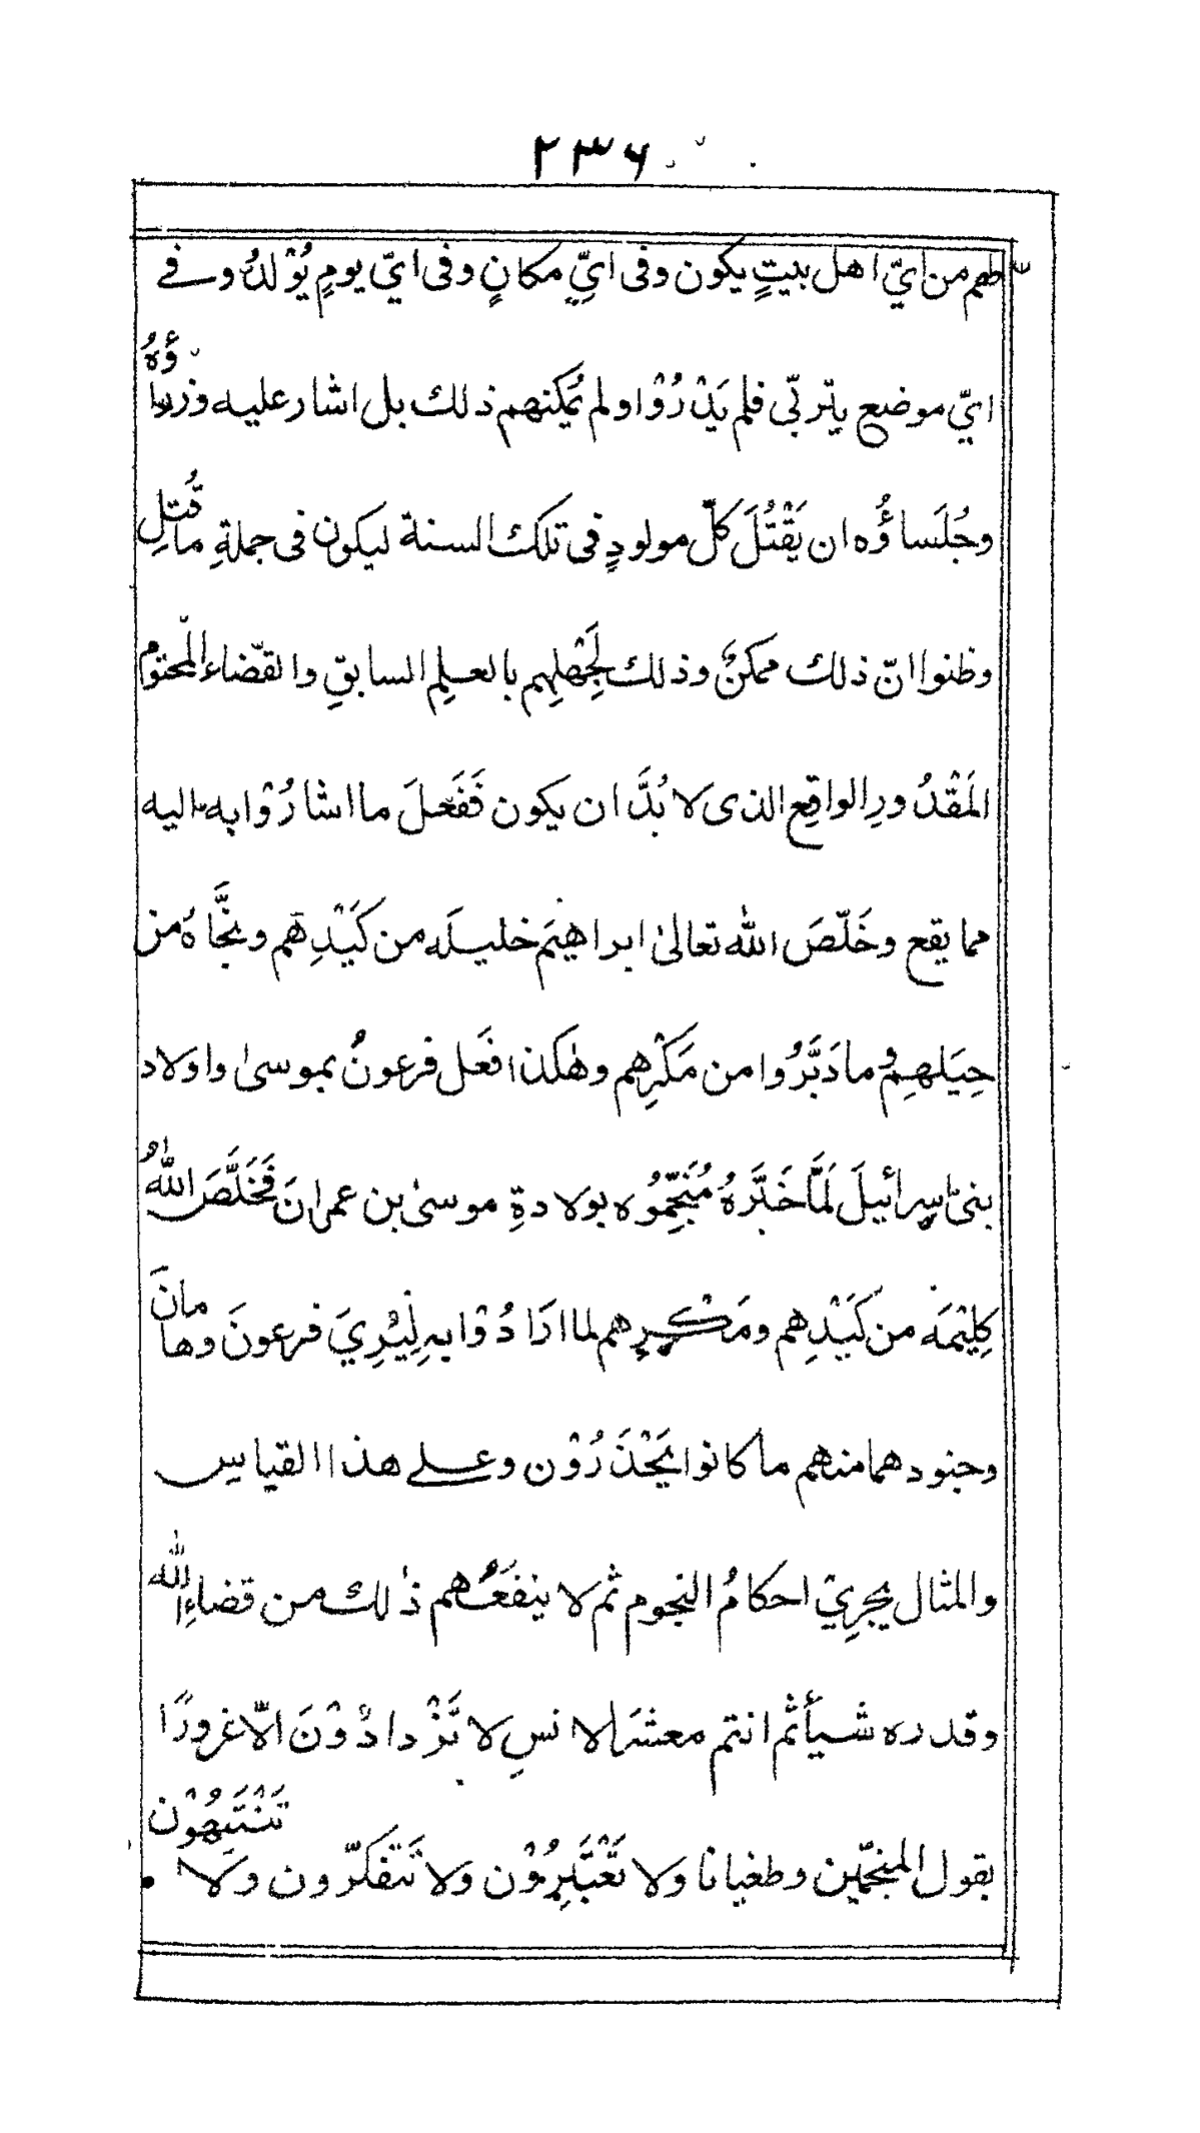 ۲۳۶
طهم من ايّ اهل بيتٍ يكون وفى ايِّ مكانٍ وفى ايّ يومٍ يُوْلدُ وفے
ايّ موضع يتربّى فلم يَدْرُوْا ولم يُمكنهم ذلك بل اشار عليه وزراؤهُ
وجُلَساؤُه ان يَقْتُلَ كلّ مولودٍ فى تلك السنة ليكون فى جملةِ ما قُتلِ
وظنوا انّ ذلك ممكنٌ وذلك لِجَهْلِهم بالعلمِ السابقِ والقضاء المحتوم
المَقْدُورِ الواقِع الذى لا بُدَّ ان يكون فَفَعَلَ ما اشارُوْا به اليه
مما يقع وخَلّصَ الله تعالىٰ ابراهيم خليلَه من كَيْدِهم ونجَّاهُ من
حِيَلهِم وما دَبَّرُوا من مَكْرِهم وهٰكذا فَعَل فرعونُ بموسىٰ واولاد
بنى اسرائيلَ لَمَّا خَبَّرَهُ مُنَجِّمُوه بولادةِ موسىٰ بن عمرانَ فَخَلَّصَ اللهُ
كِلِيْمَه من كَيْدِهم ومَكْرِهم لما ارَادُوْا بهِ لِيُرِيَ فرعونَ وهامانَ
وجنودهما منهم ما كانوا يَحْذَرُوْن وعلے هذا القياس
والمثال يجرِيْ احكامُ النجوم ثم لا ينفَعُهم ذٰلك من قضاءِ الله
وقدره شيأ ثم انتم معشرَ الانسِ لا تَزْدادُوْنَ الّا غرورًا
بقول المنجّمين وطغيانا ولا تَعْتَبِرُوْن ولا تَتَفكّرون ولا تَنْتَبِهُوْن